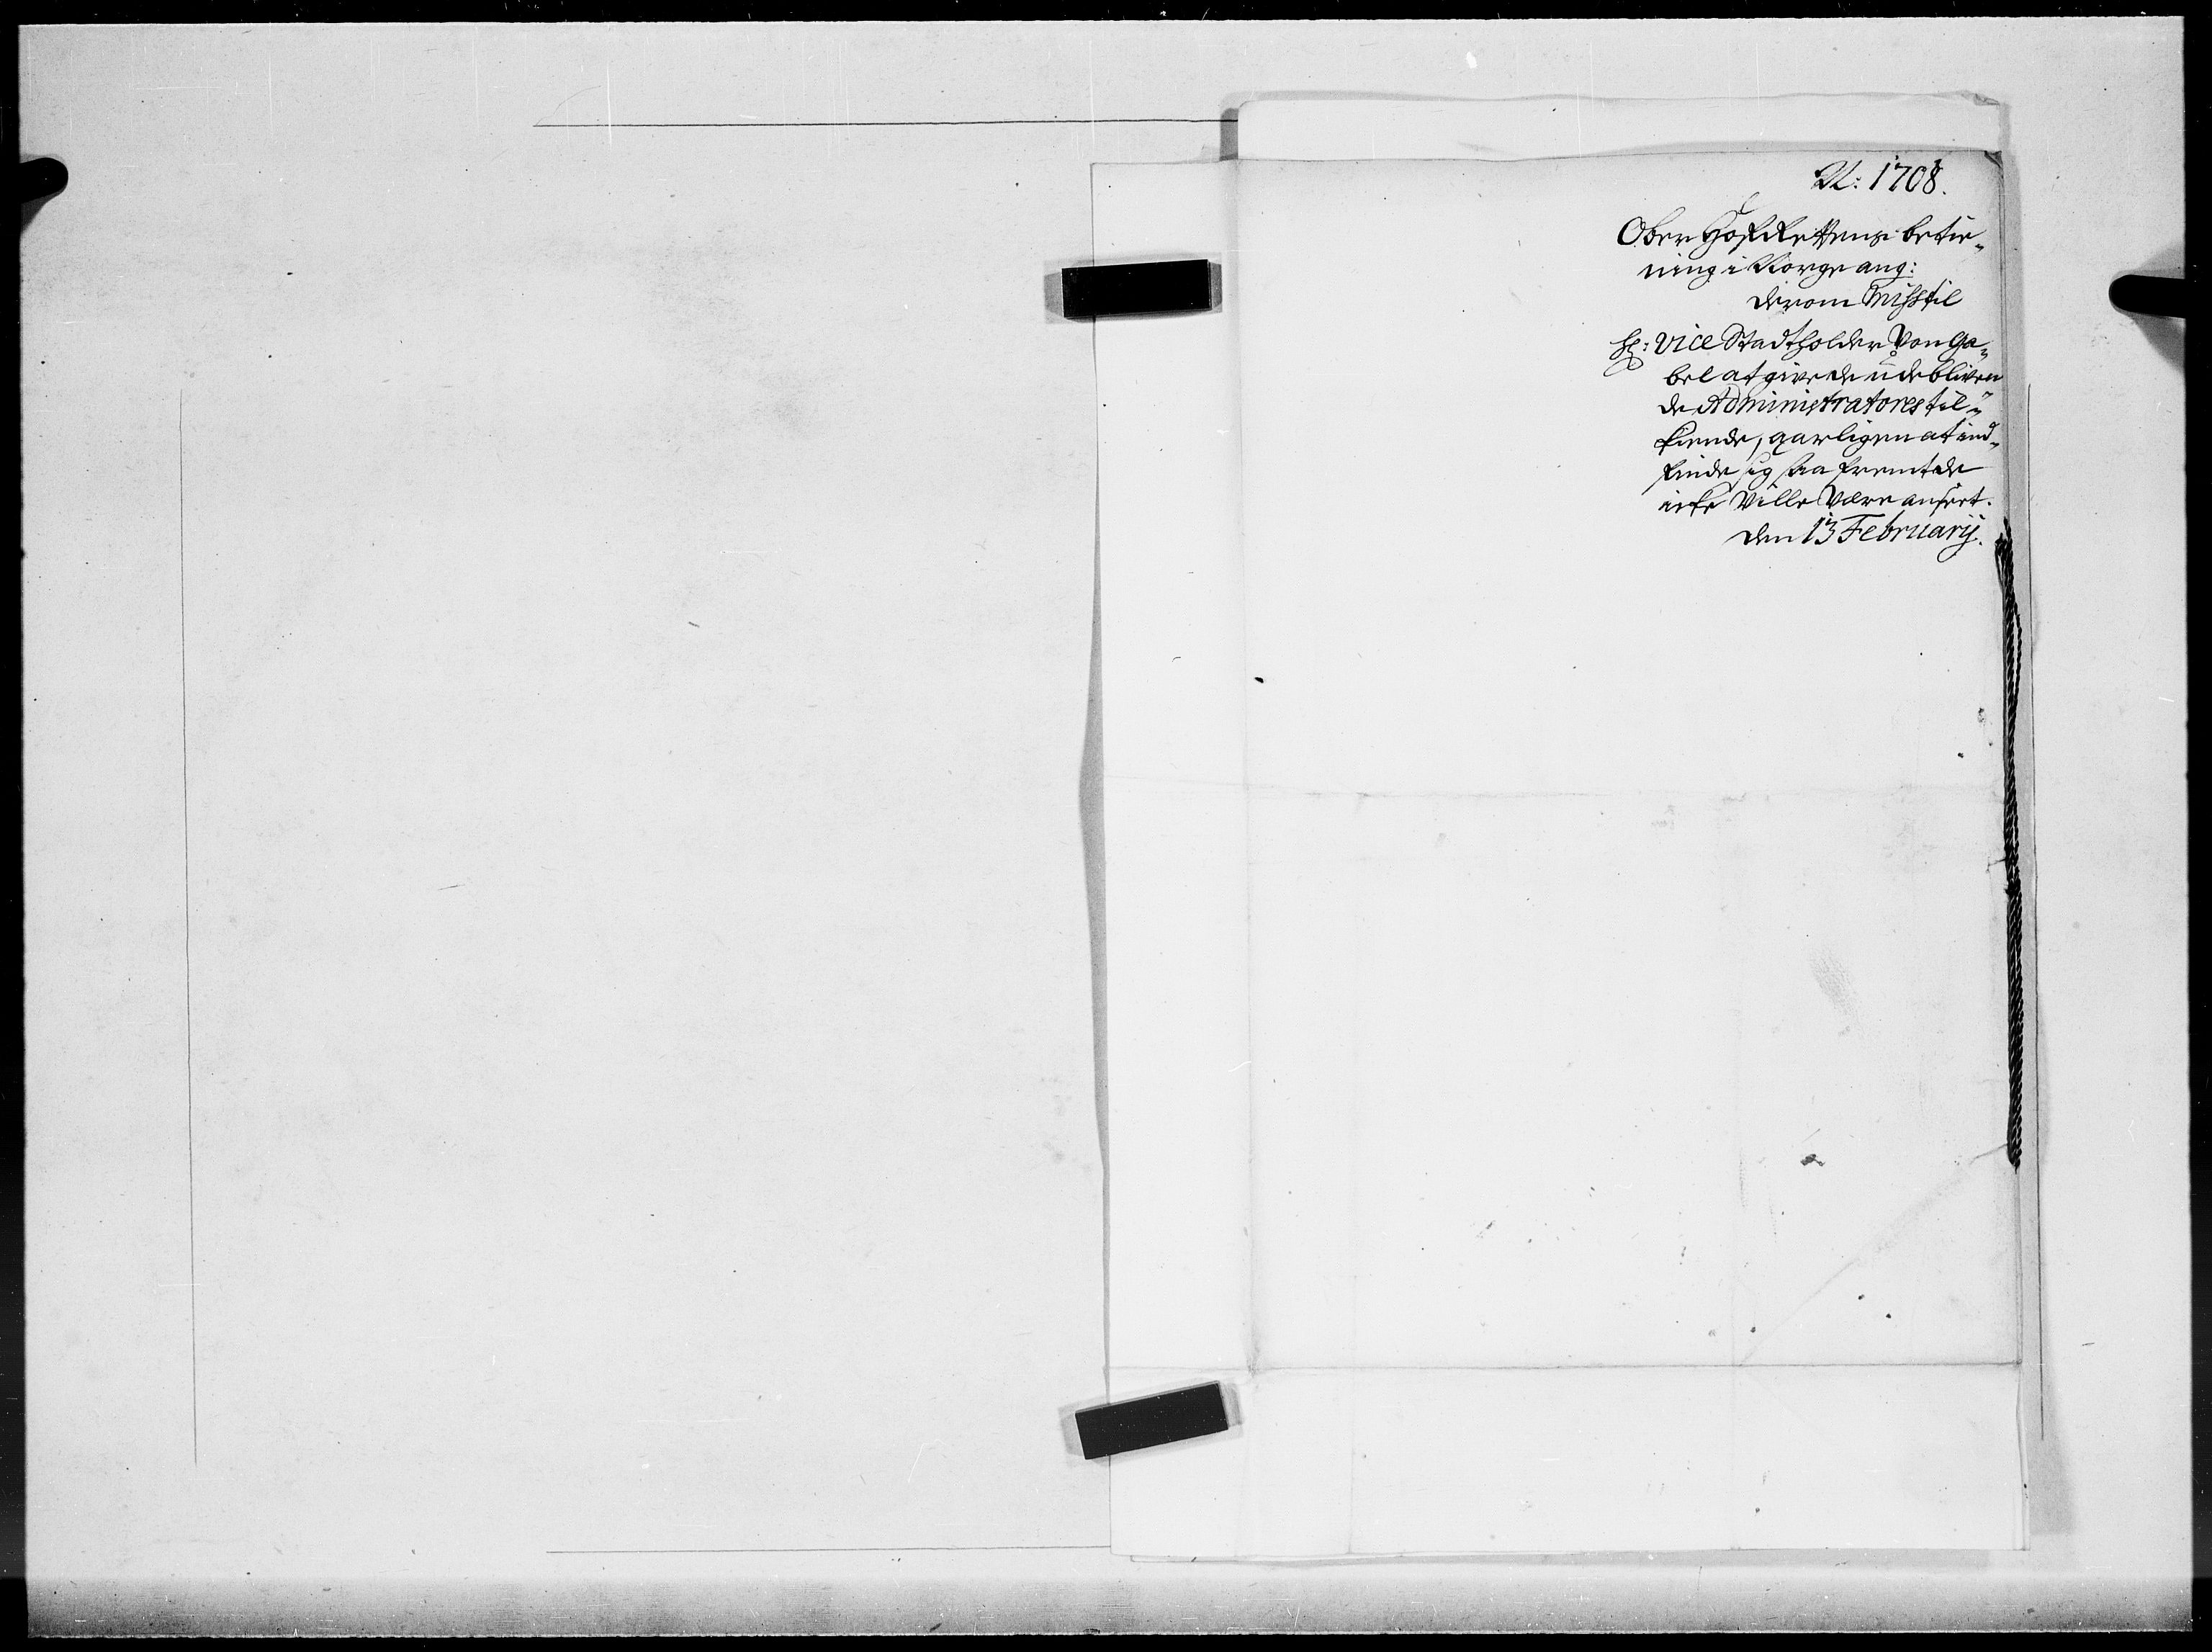 A: 1708.
Ober Hof Rettens betie¬
ning i Norge ang:
derom Miss til
Hr: Vice Stadtholder Von Ga¬
bel at give de udebliven
de Administratores til¬
kiende, aarligen at ind¬
finde sig saa fremt de
icke Ville være anseet.
den 13 Februarij.